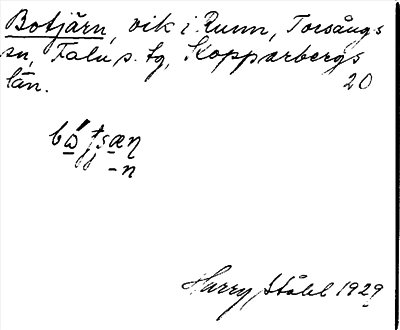 Botjärn, vik i Runn, Torsångs
sn, Falu s. tg, Kopparbergs
län. 20
-n
Harry Ståhl 1929